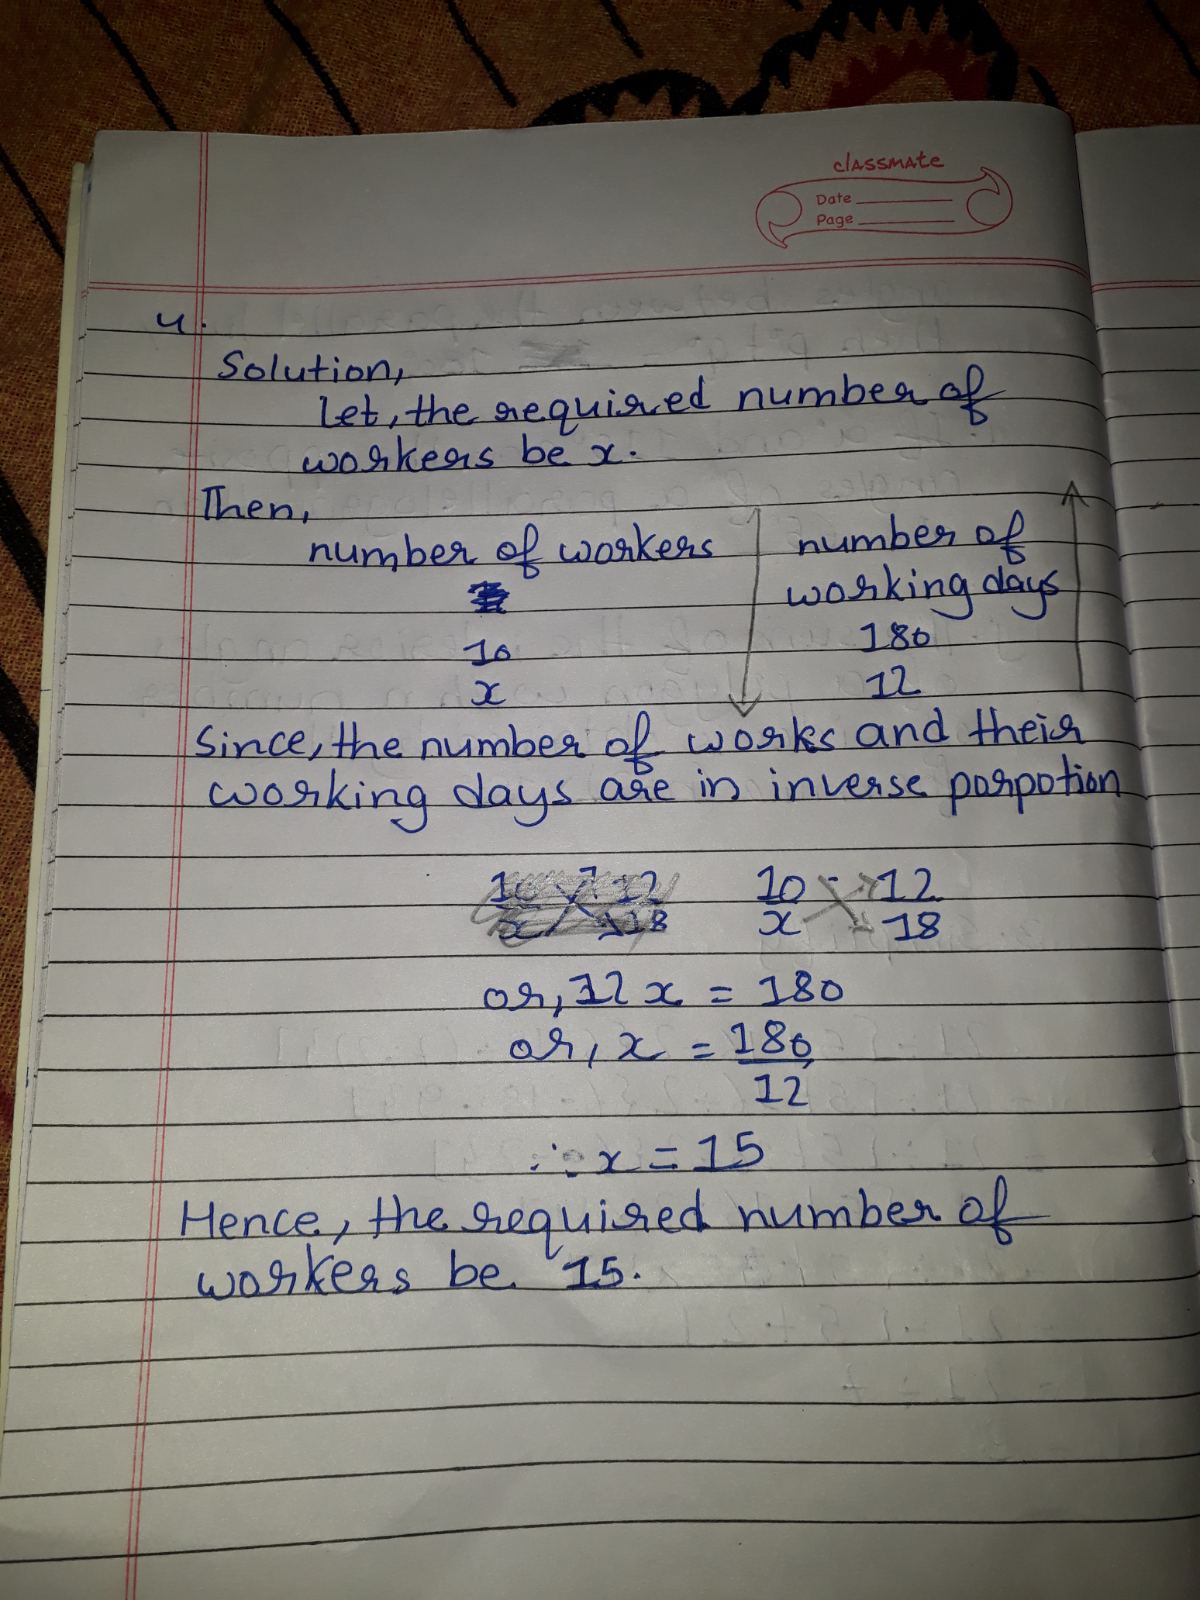 classmate
Date
Page
4.
Solution,
Let, the required number of
workers be x.
Then,
number of workers number of
working days
10 180
x 12
Since, the number of works and their
working days are in inverse porpotion
10 = 12
x 18
or, 12x = 180
or, x = 180
12
∴ x = 15
Hence, the required number of
workers be 15.